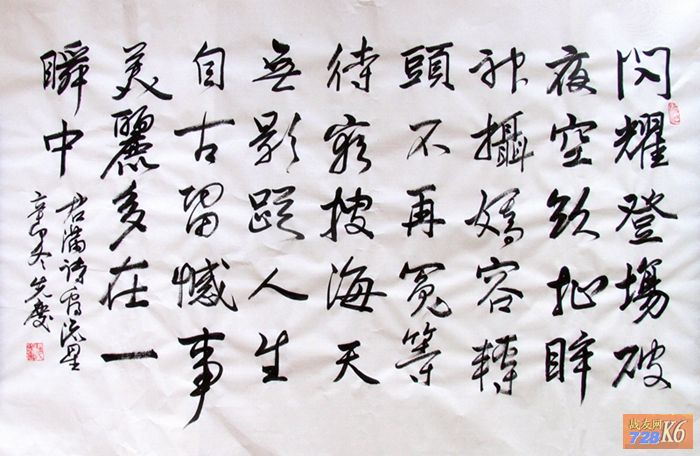 閃耀登塲破
夜空欲扯眸
神攝嫣容轉
頭不再覓等
待窮搜海天
無影踪人生
自古留憾事
美麗多在一
瞬中
君滿詩寫流星
辛卯冬先慶
战友网
728K6